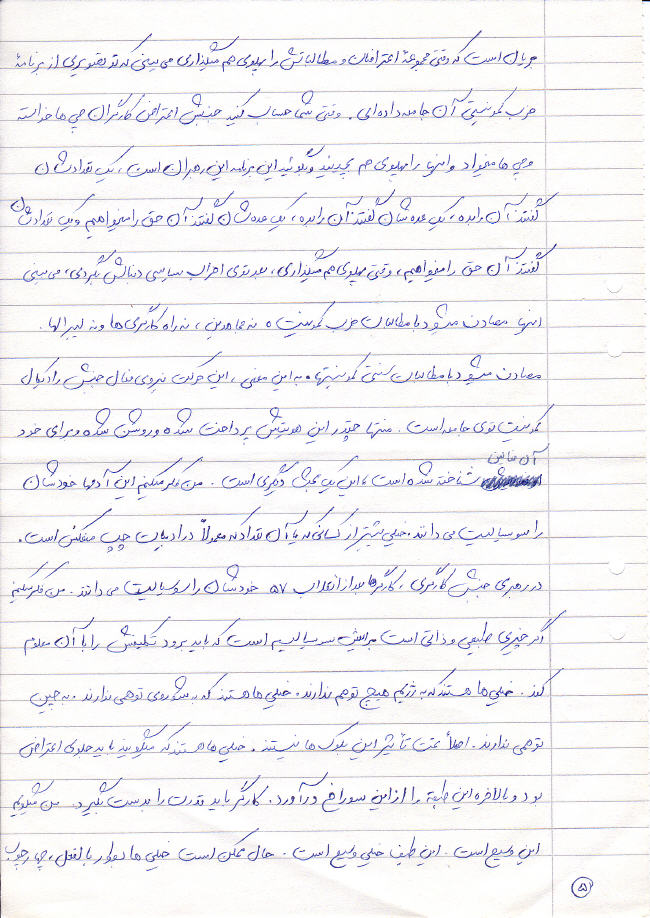 جریان است که وقتی مجموعهٔ اعتراضات و مطالباتش را پهلوی هم میگذاری می بینی که تو تصویری از برنامهٔ
حزب کمونیستی آن جامعه داده‌ای. وقتی شما حساب کنید جنبش اعتراضی کارگران چی ها خواسته
و چی ها میخواد و اینها را پهلوی هم بچینید و بگوئید این برنامه این رهبران است، یک تعدادشان
گفتند آن را بده، یک عده شان گفتند آن را بده، یک عده شان گفتند آن حق را میخواهیم و یک تعدادشان
گفتند آن حق را میخواهیم، وقتی پهلوی هم میگذاری، بعد توی احزاب سیاسی دنبالش بگردی، می بینی
اینها مصادف میشود با مطالبات حزب کمونیست نه مجاهدین، نه راه کارگری ها و نه لیبرالها.
مصادف میشود با مطالبات سنتی کمونیستها. به این معنی، این حرکت نیروی فعال جنبش رادیکال
کمونیست توی جامعه است. منتها چقدر این هویتش پرداخت شده و روشن شده و برای خود
آن فعالین
شناخته شده است، این یک بحث دیگری است. من فکر میکنم این آدمها خودشان
را سوسیالیست می دانند. خیلی بیشتر از کسانی که یا آن تعداد که معمولاً در ادبیات چپ منعکس است.
در رهبری جنبش کارگری، کارگرها بعد از انقلاب ۵۷ خودشان را سوسیالیست می دانند. من فکر میکنم
اگر چیزی طبیعی و ذاتی است برایش سوسیالیسم است که باید برود تکلیفش را با آن معلوم
کند. خیلی ها هستند که به رژیم هیچ توهم ندارند. خیلی ها هستند که به شوروی توهمی ندارند. به چین
توهمی ندارند. اصلاً تحت تأثیر این بلوک ها نیستند. خیلی ها هستند که میگویند باید جلوی اعتراض
بود و بالاخره این طبقه را از این سوراخ درآورد. کارگر باید قدرت را بدست بگیرد. من میگویم
این وسیع است. این طیف خیلی وسیع است. حال ممکن است خیلی ها بطور بالفعل، چهارچوب
۵